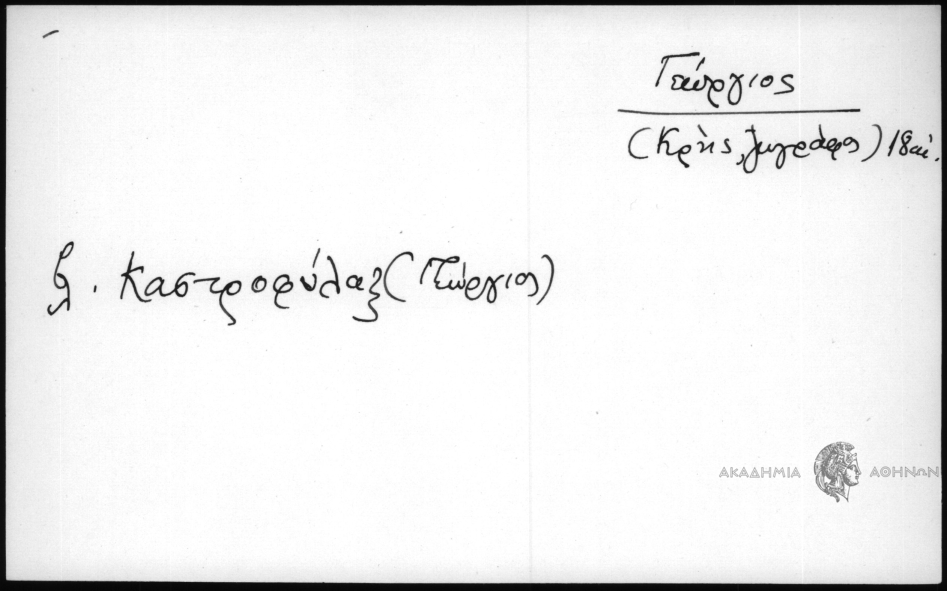 Γεώργιος
(Κρής, ζωγράφος) 18 αἰ.
βλ. Καστροφύλαξ (Γεώργιος)
ΑΚΑΔΗΜΙΑ ΑΘΗΝΩΝ